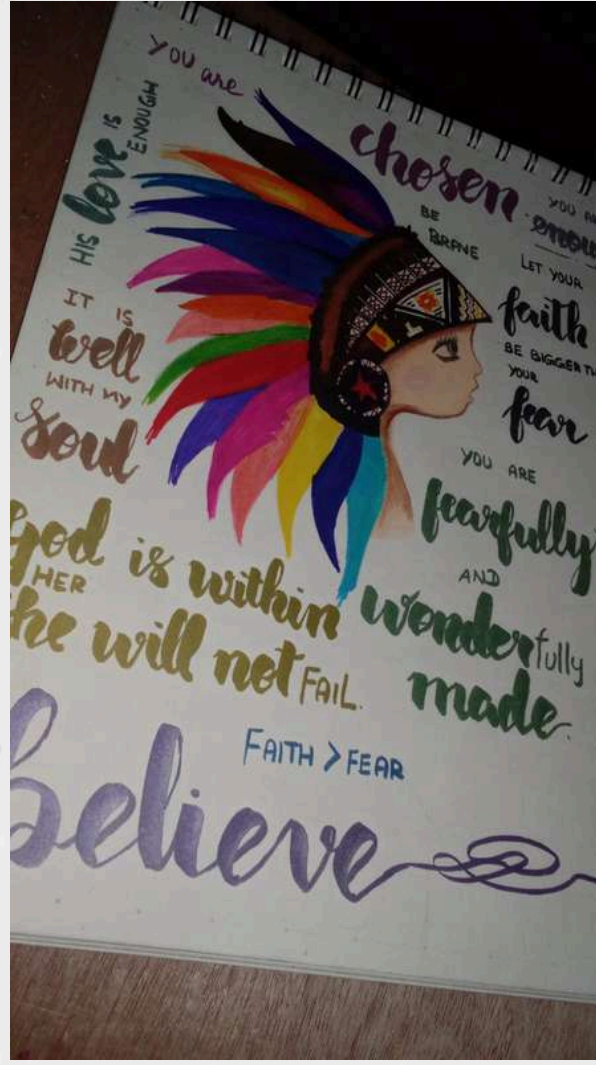 you are
chosen.
HIS love IS
ENOUGH
BE
BRAVE
LET YOUR
faith
BE BIGGER
YOUR
fear
IT IS
well
WITH MY
soul
YOU ARE
fearfully
AND
wonderfully
made.
God is within
HER
she will not FAIL.
FAITH > FEAR
believe